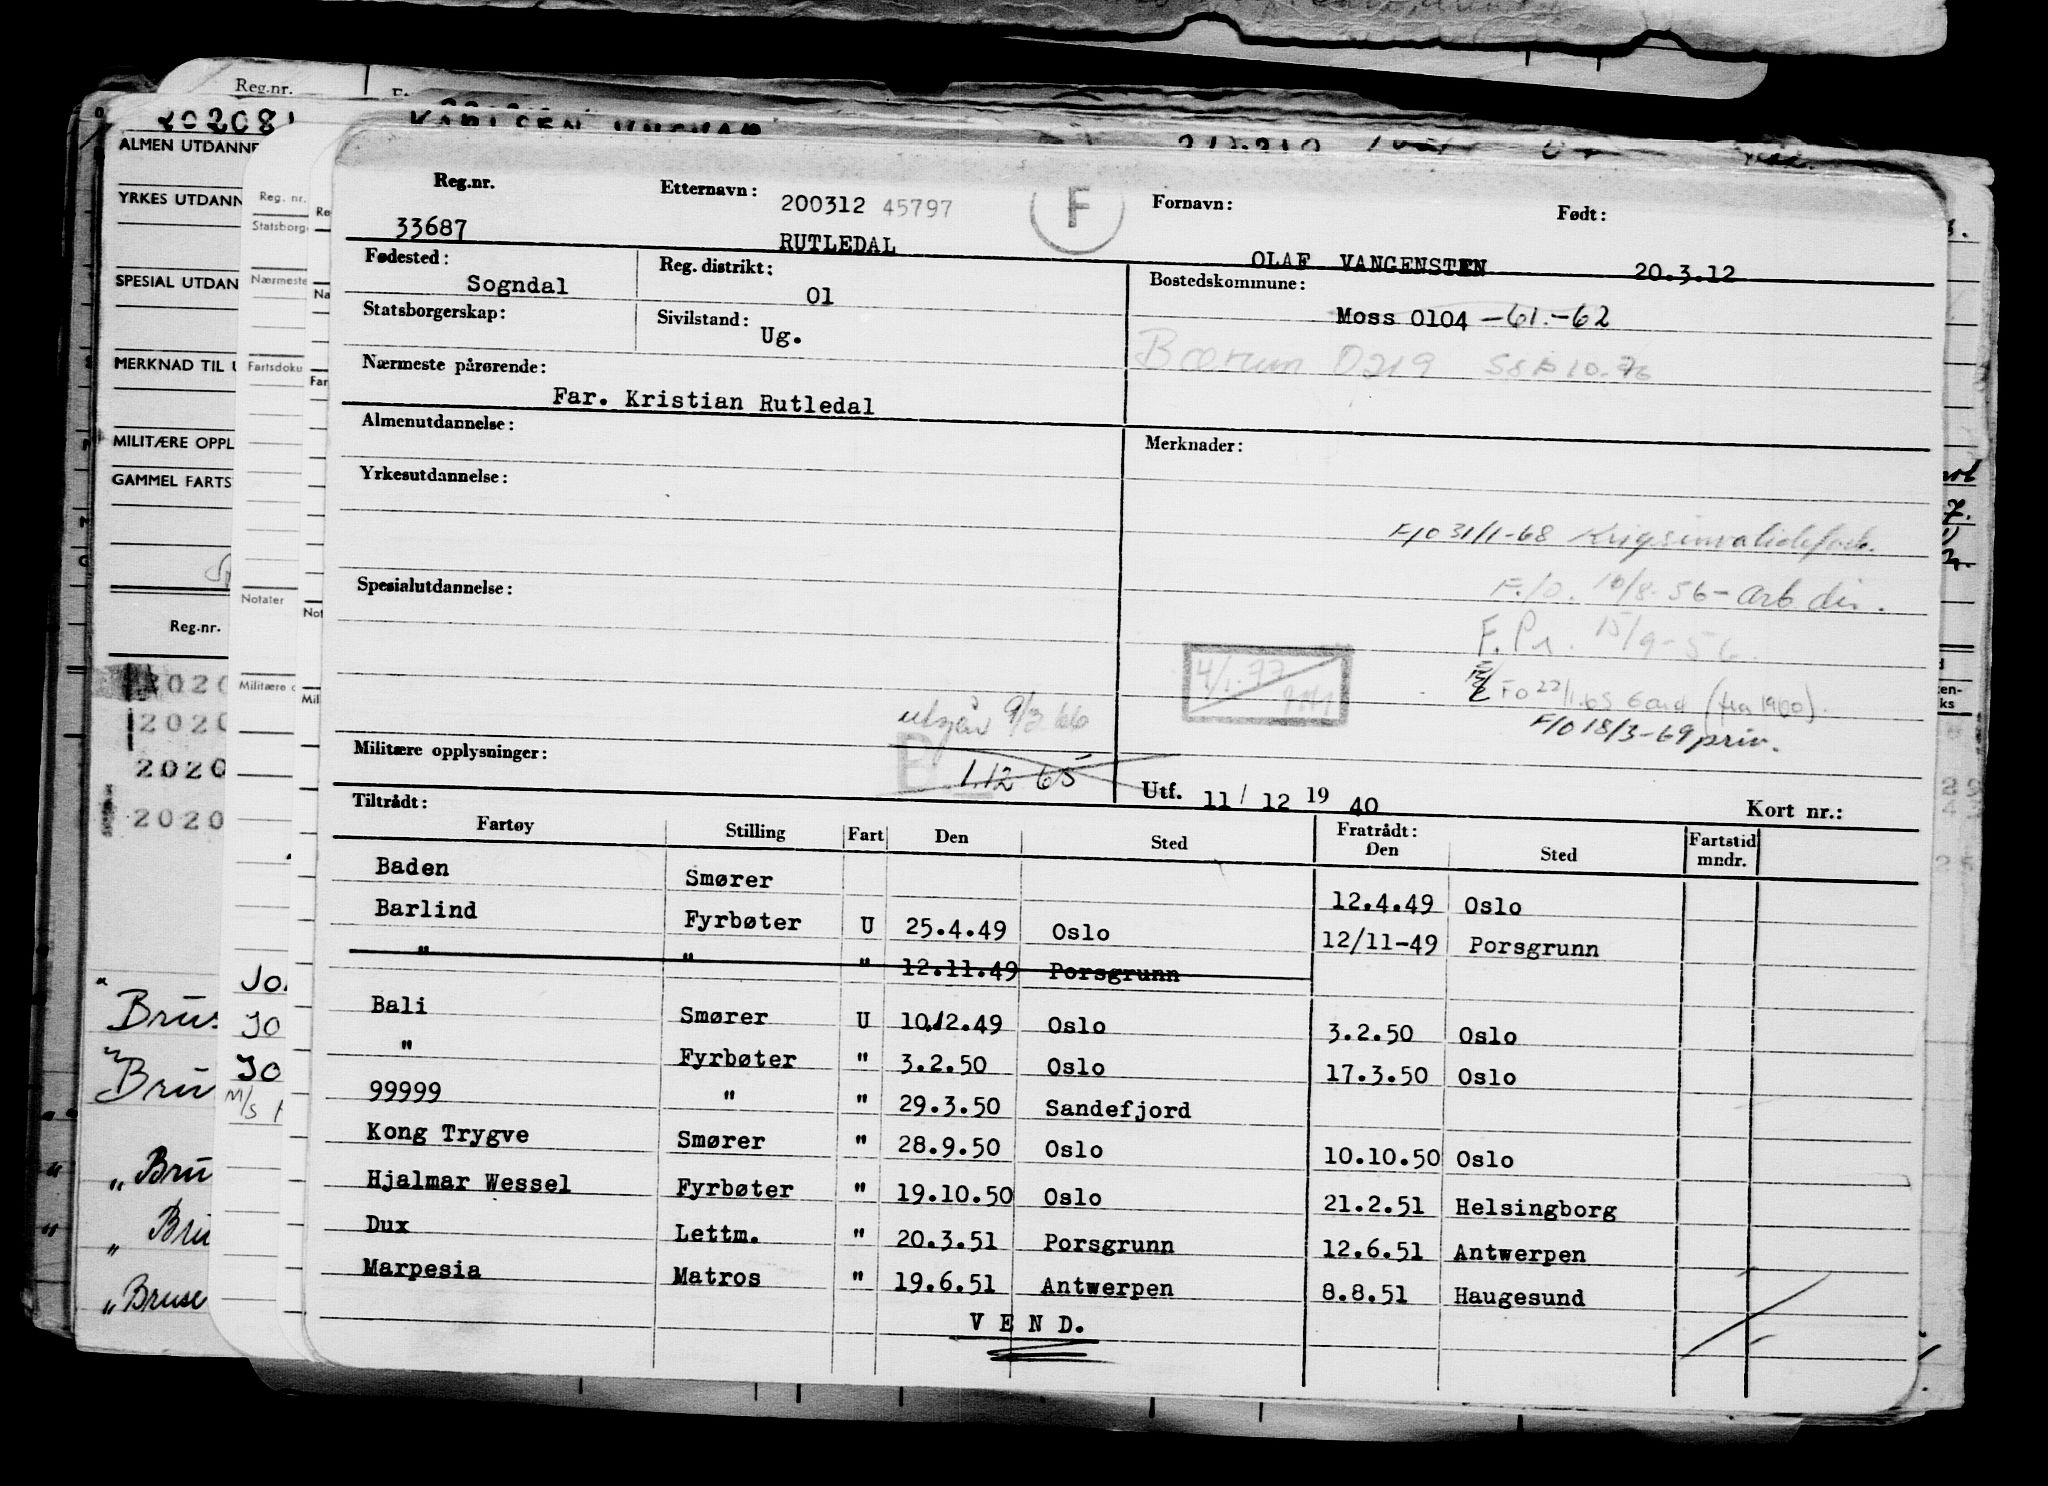 Reg.nr. Etternavn: 200312 45797 F Fornavn: Født:
33687 RUTLEDAL OLAF VANGENSTEN 20.3.12
Fødested: Sogndal Reg. distrikt: 01 Bostedskommune:
Statsborgerskap: Sivilstand: Ug. Moss 0104 -61.-62
Bærum 0219
Nærmeste pårørende:
Far. Kristian Rutledal
Almenutdannelse: Merknader:
Yrkesutdannelse:
F/O 31/1-68 Krigsinvalideforb.
Spesialutdannelse:
F./O. 16/8-56- arb dir.
F.Pr. 15/9-56.
4/1.77
FO 22/1.65 Gard (fra 1900).
F/O 18/3-69 priv.
utgår 9/3 66
Militære opplysninger: 1.12 65
Utf. 11/ 12 19 40 Kort nr.:
Tiltrådt: Fratrådt:
Fartøy Stilling Fart Den Sted Den Sted Fartstid mndr.
Baden Smører 12.4.49 Oslo
Barlind Fyrbøter U 25.4.49 Oslo 12/11-49 Porsgrunn
" " " 12.11.49 Porsgrunn
Bali Smører U 10.12.49 Oslo 3.2.50 Oslo
" Fyrbøter " 3.2.50 Oslo 17.3.50 Oslo
99999 " " 29.3.50 Sandefjord
Kong Trygve Smører " 28.9.50 Oslo 10.10.50 Oslo
Hjalmar Wessel Fyrbøter " 19.10.50 Oslo 21.2.51 Helsingborg
Dux Lettm. " 20.3.51 Porsgrunn 12.6.51 Antwerpen
Marpesia Matros " 19.6.51 Antwerpen 8.8.51 Haugesund
V E N D.
Reg.nr.
20208
ALMEN UTDANNE
YRKES UTDANN
SPESIAL UTDAN
MERKNAD TIL U
MILITÆRE OPPL
GAMMEL FARTS
Reg.nr.
2020
2020
2020
2020
Reg. nr.
Statsborge
Nærmeste
Fartsdoku
Notater
Militære o
Brus
Bru
Bru
Bru
Bruse
Jo
Jo
Jo
M/s